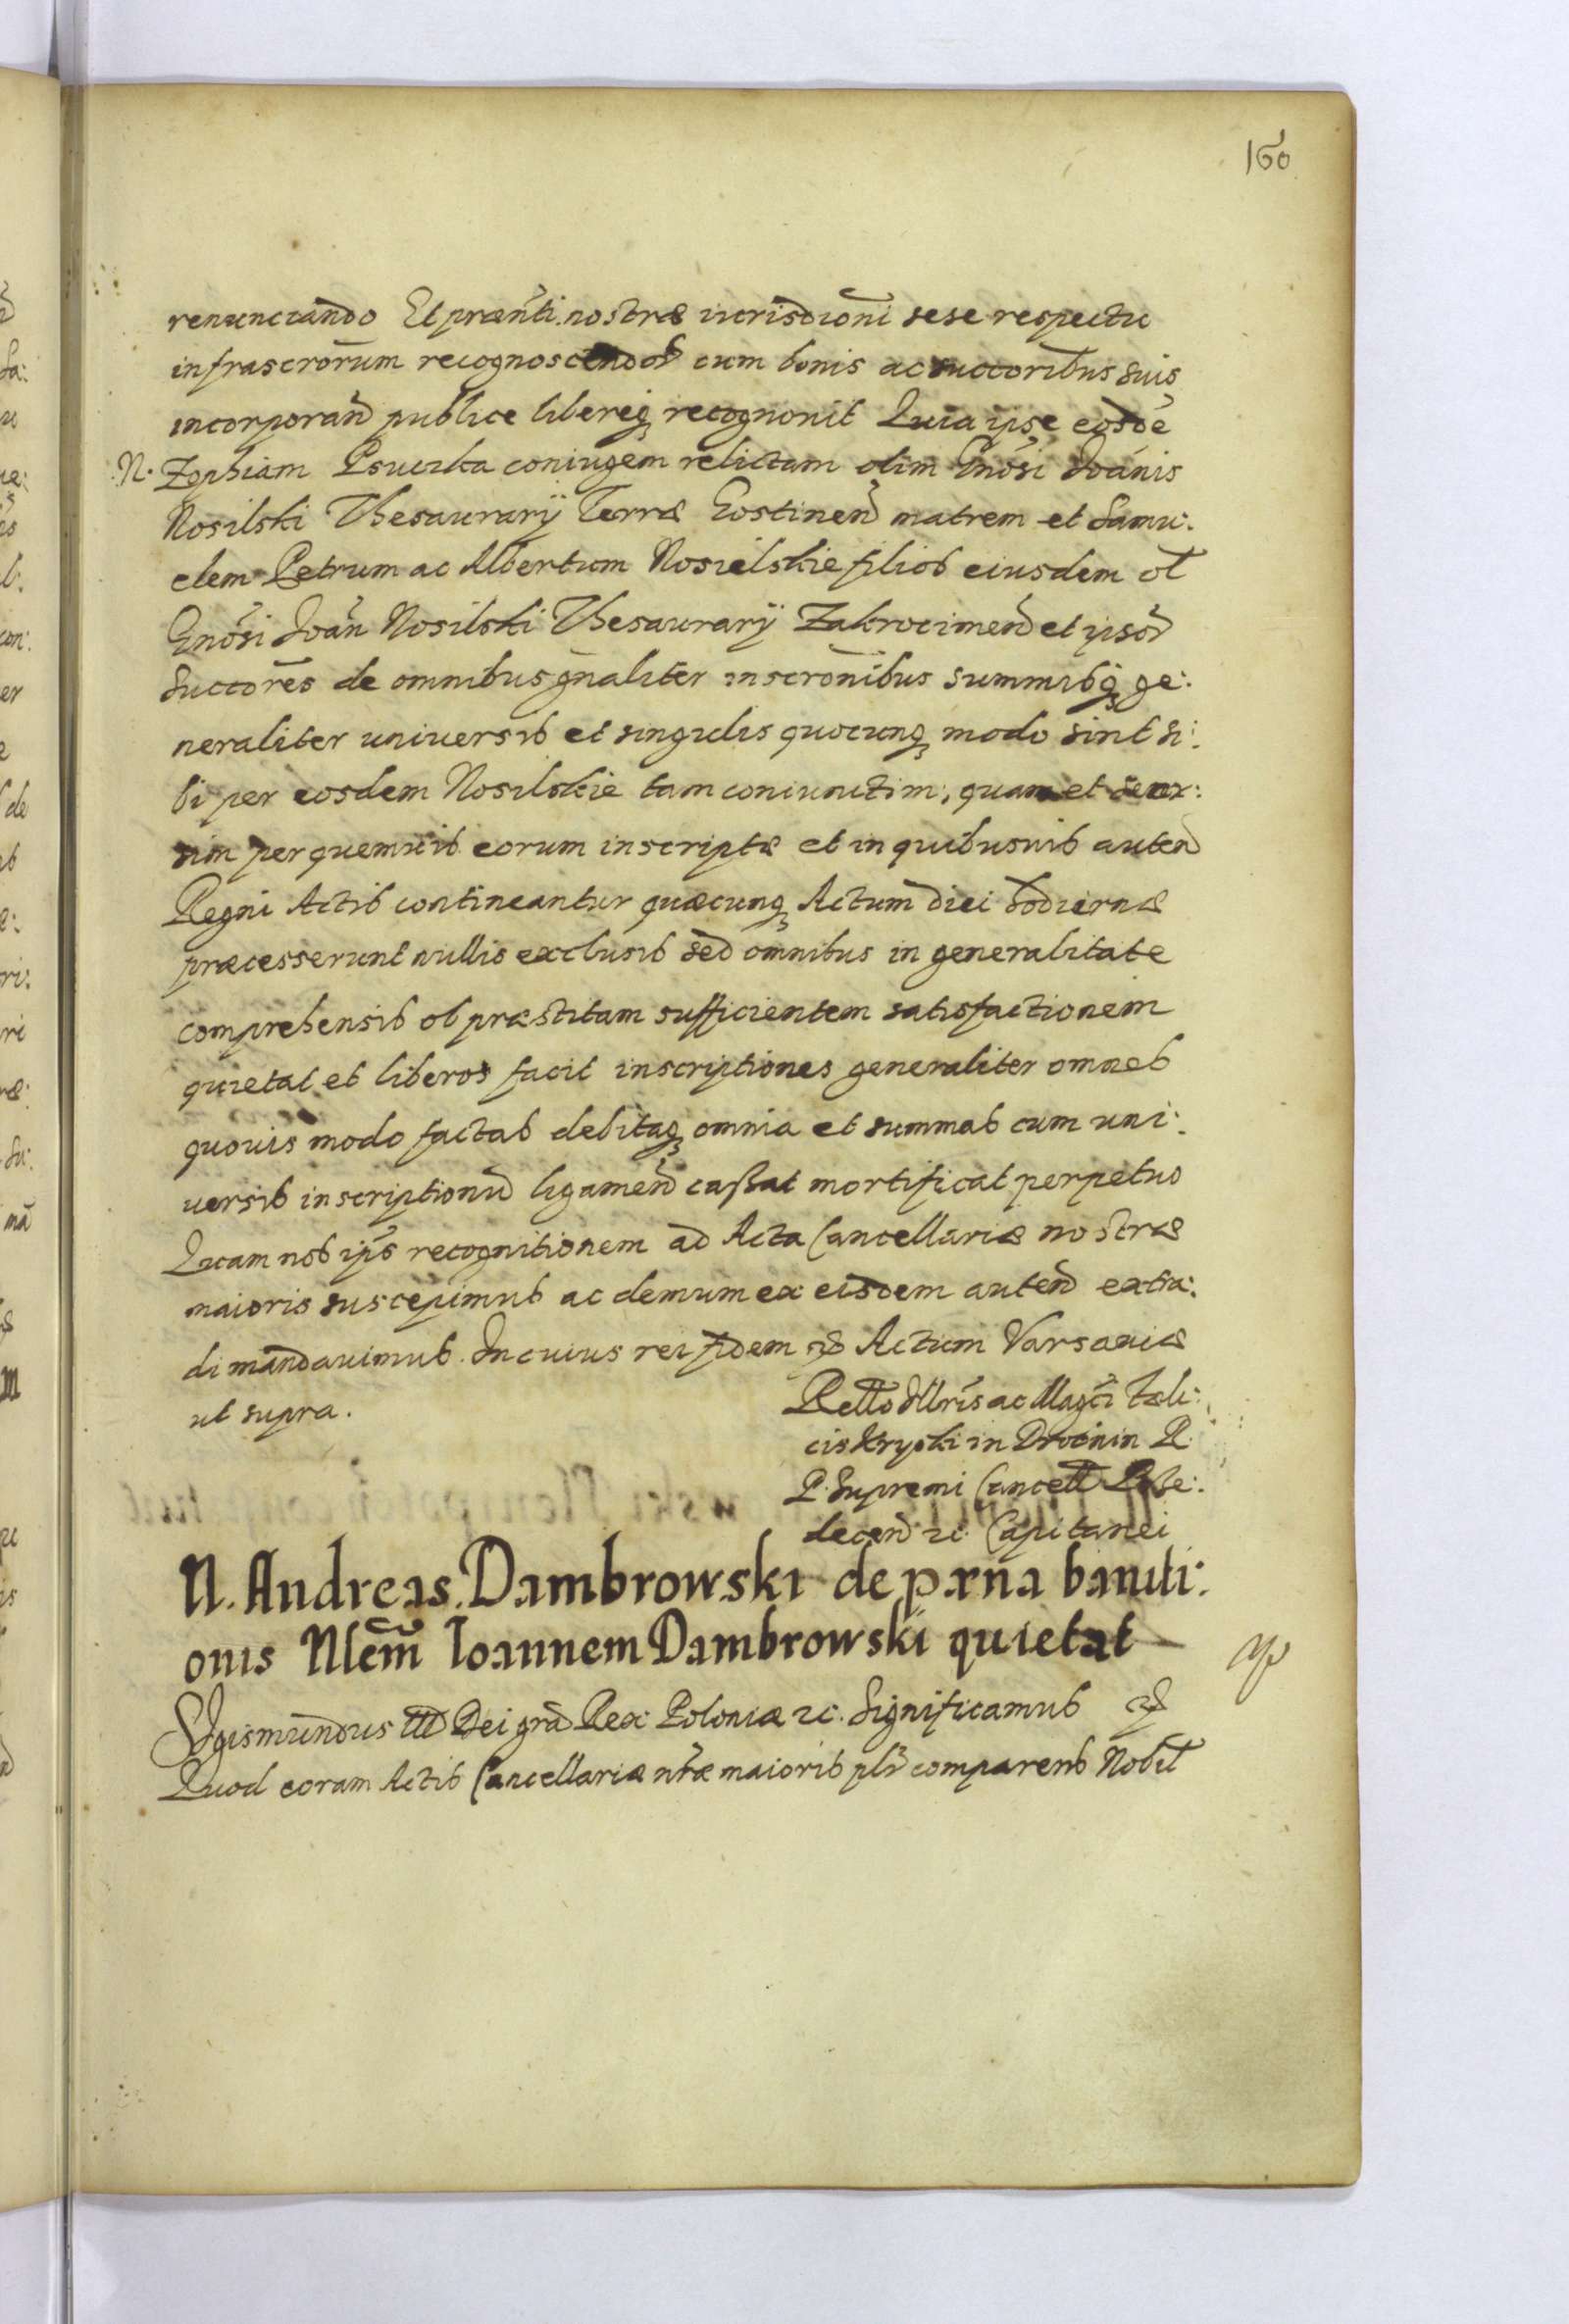 160
renunciando Et præn̄ti nostræ iurisdioni sese respectu
infrascrorum recognoscendor cum bonis ac succoribus suis
incorporan publice libereq recognouit Quia ipse eosdē
N. Zophiam coniugem relictam olim Gnosi Joānis
Nosilski Thesaurarÿ Terræ Gostinen matrem et Samu:
elem Petrum ac Albertum Nosielskie filios eiusdem ol
Gnosi Joān Nosilski Thesaurarÿ Zakrocimen et ipsor
Succores de omnibus gnaliter inscronibus summisq ge:
neraliter uniuersis et singulis quocunq modo sint si:
bi per eosdem Nosilskie tam coniunctim, quam et
sim per quemuis eorum inscriptæ et in quibusuis auten
Regni Actis contineantur quæcunq Actum diei hodiernæ
præcesserunt nullis exclusis sed omnibus in generalitate
comprehensis ob præstitam sufficientem satisfactionem
quietat et liberos facit inscriptiones generaliter omnes
quouis modo factas debitaq omnia et summas cum uni:
uersis inscriptionu ligamen cassat mortificat perpetuo
Quam nos ips recognitionem ad Acta Cancellariæ nostræ
maioris suscepimus ac demum ex eisdem auten extra:
di mandauimus. In cuius rei fidem Actum Varsauiæ
ut supra.
Rello Illris ac Magci Fæli:
cis Kryski in Drobnin R.
P. Supremi Cancell
Capitanei
N. Andreas Dambrowski de pæna banniti:
onis Nlem Ioannem Dambrowski quietat
Sigismundus III Dei gra Rex Poloniæ Significamus
Quod coram Actis Cancellariæ nræ maioris plr comparens Nobil